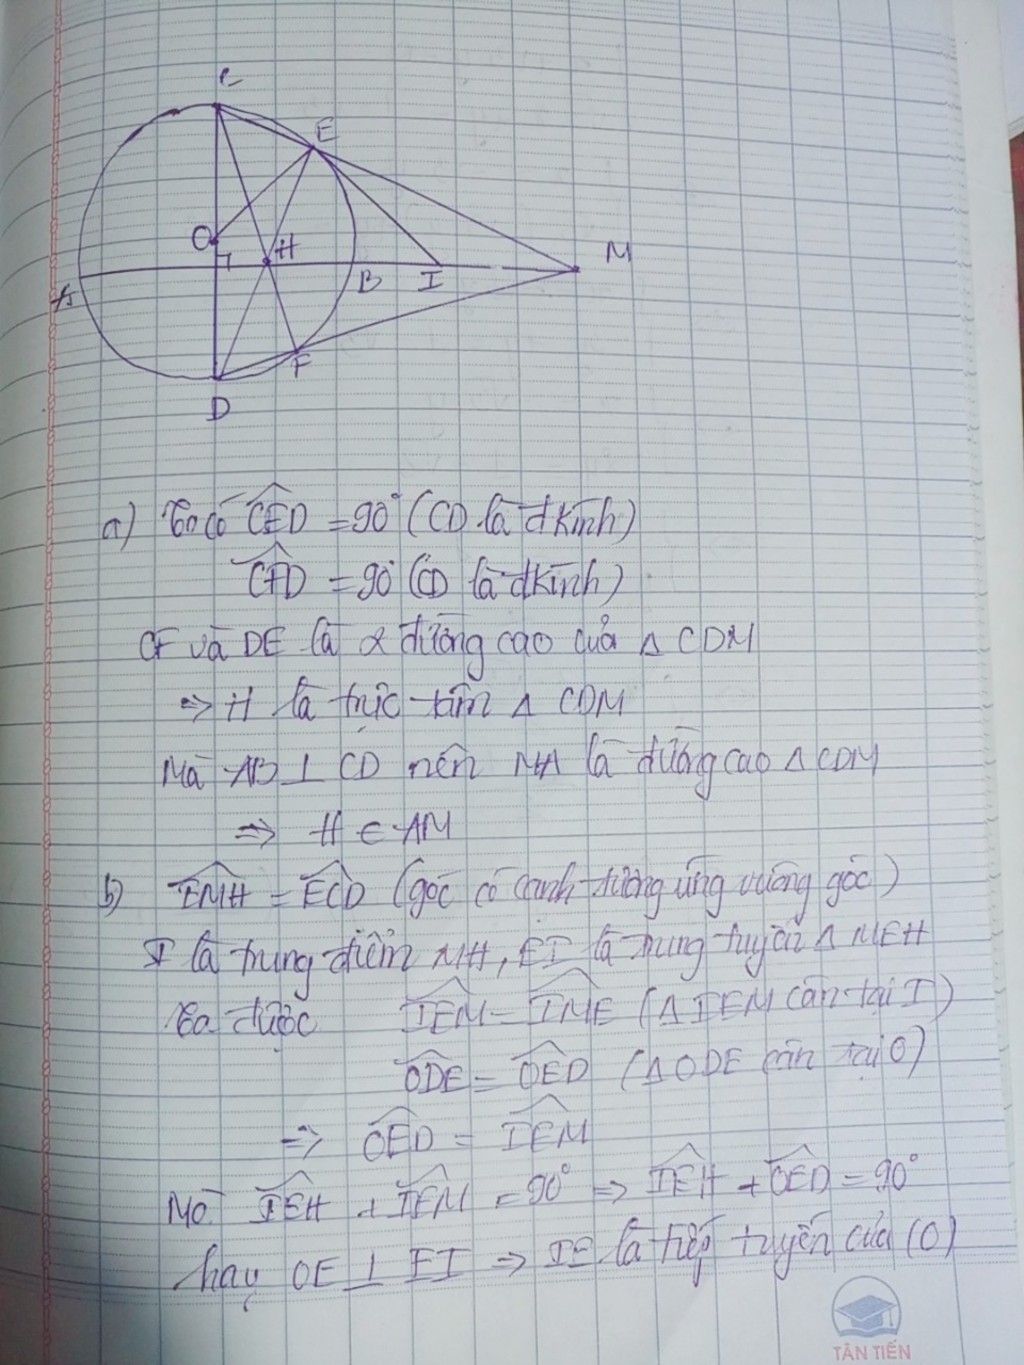 C
E
O
H
M
A
B
I
F
D
a) Ta có CED = 90° (CD là đkính)
CFD = 90° (CD là đkính)
CF và DE là 2 đường cao của Δ CDM
⇒ H là trực tâm Δ CDM
Mà AB ⊥ CD nên MA là đường cao Δ CDM
⇒ H ∈ AM
b) EMH = ECD (góc có cạnh tương ứng vuông góc)
I là trung điểm MH, EI là trung tuyến Δ MEH
Ta được IEM = IME (Δ IEM cân tại I)
ODE = OED (Δ ODE cân tại O)
⇒ OED = IEM
Mà IEH + IEM = 90° ⇒ IEH + OED = 90°
hay OE ⊥ EI ⇒ IE là tiếp tuyến của (O)
TÂN TIẾN